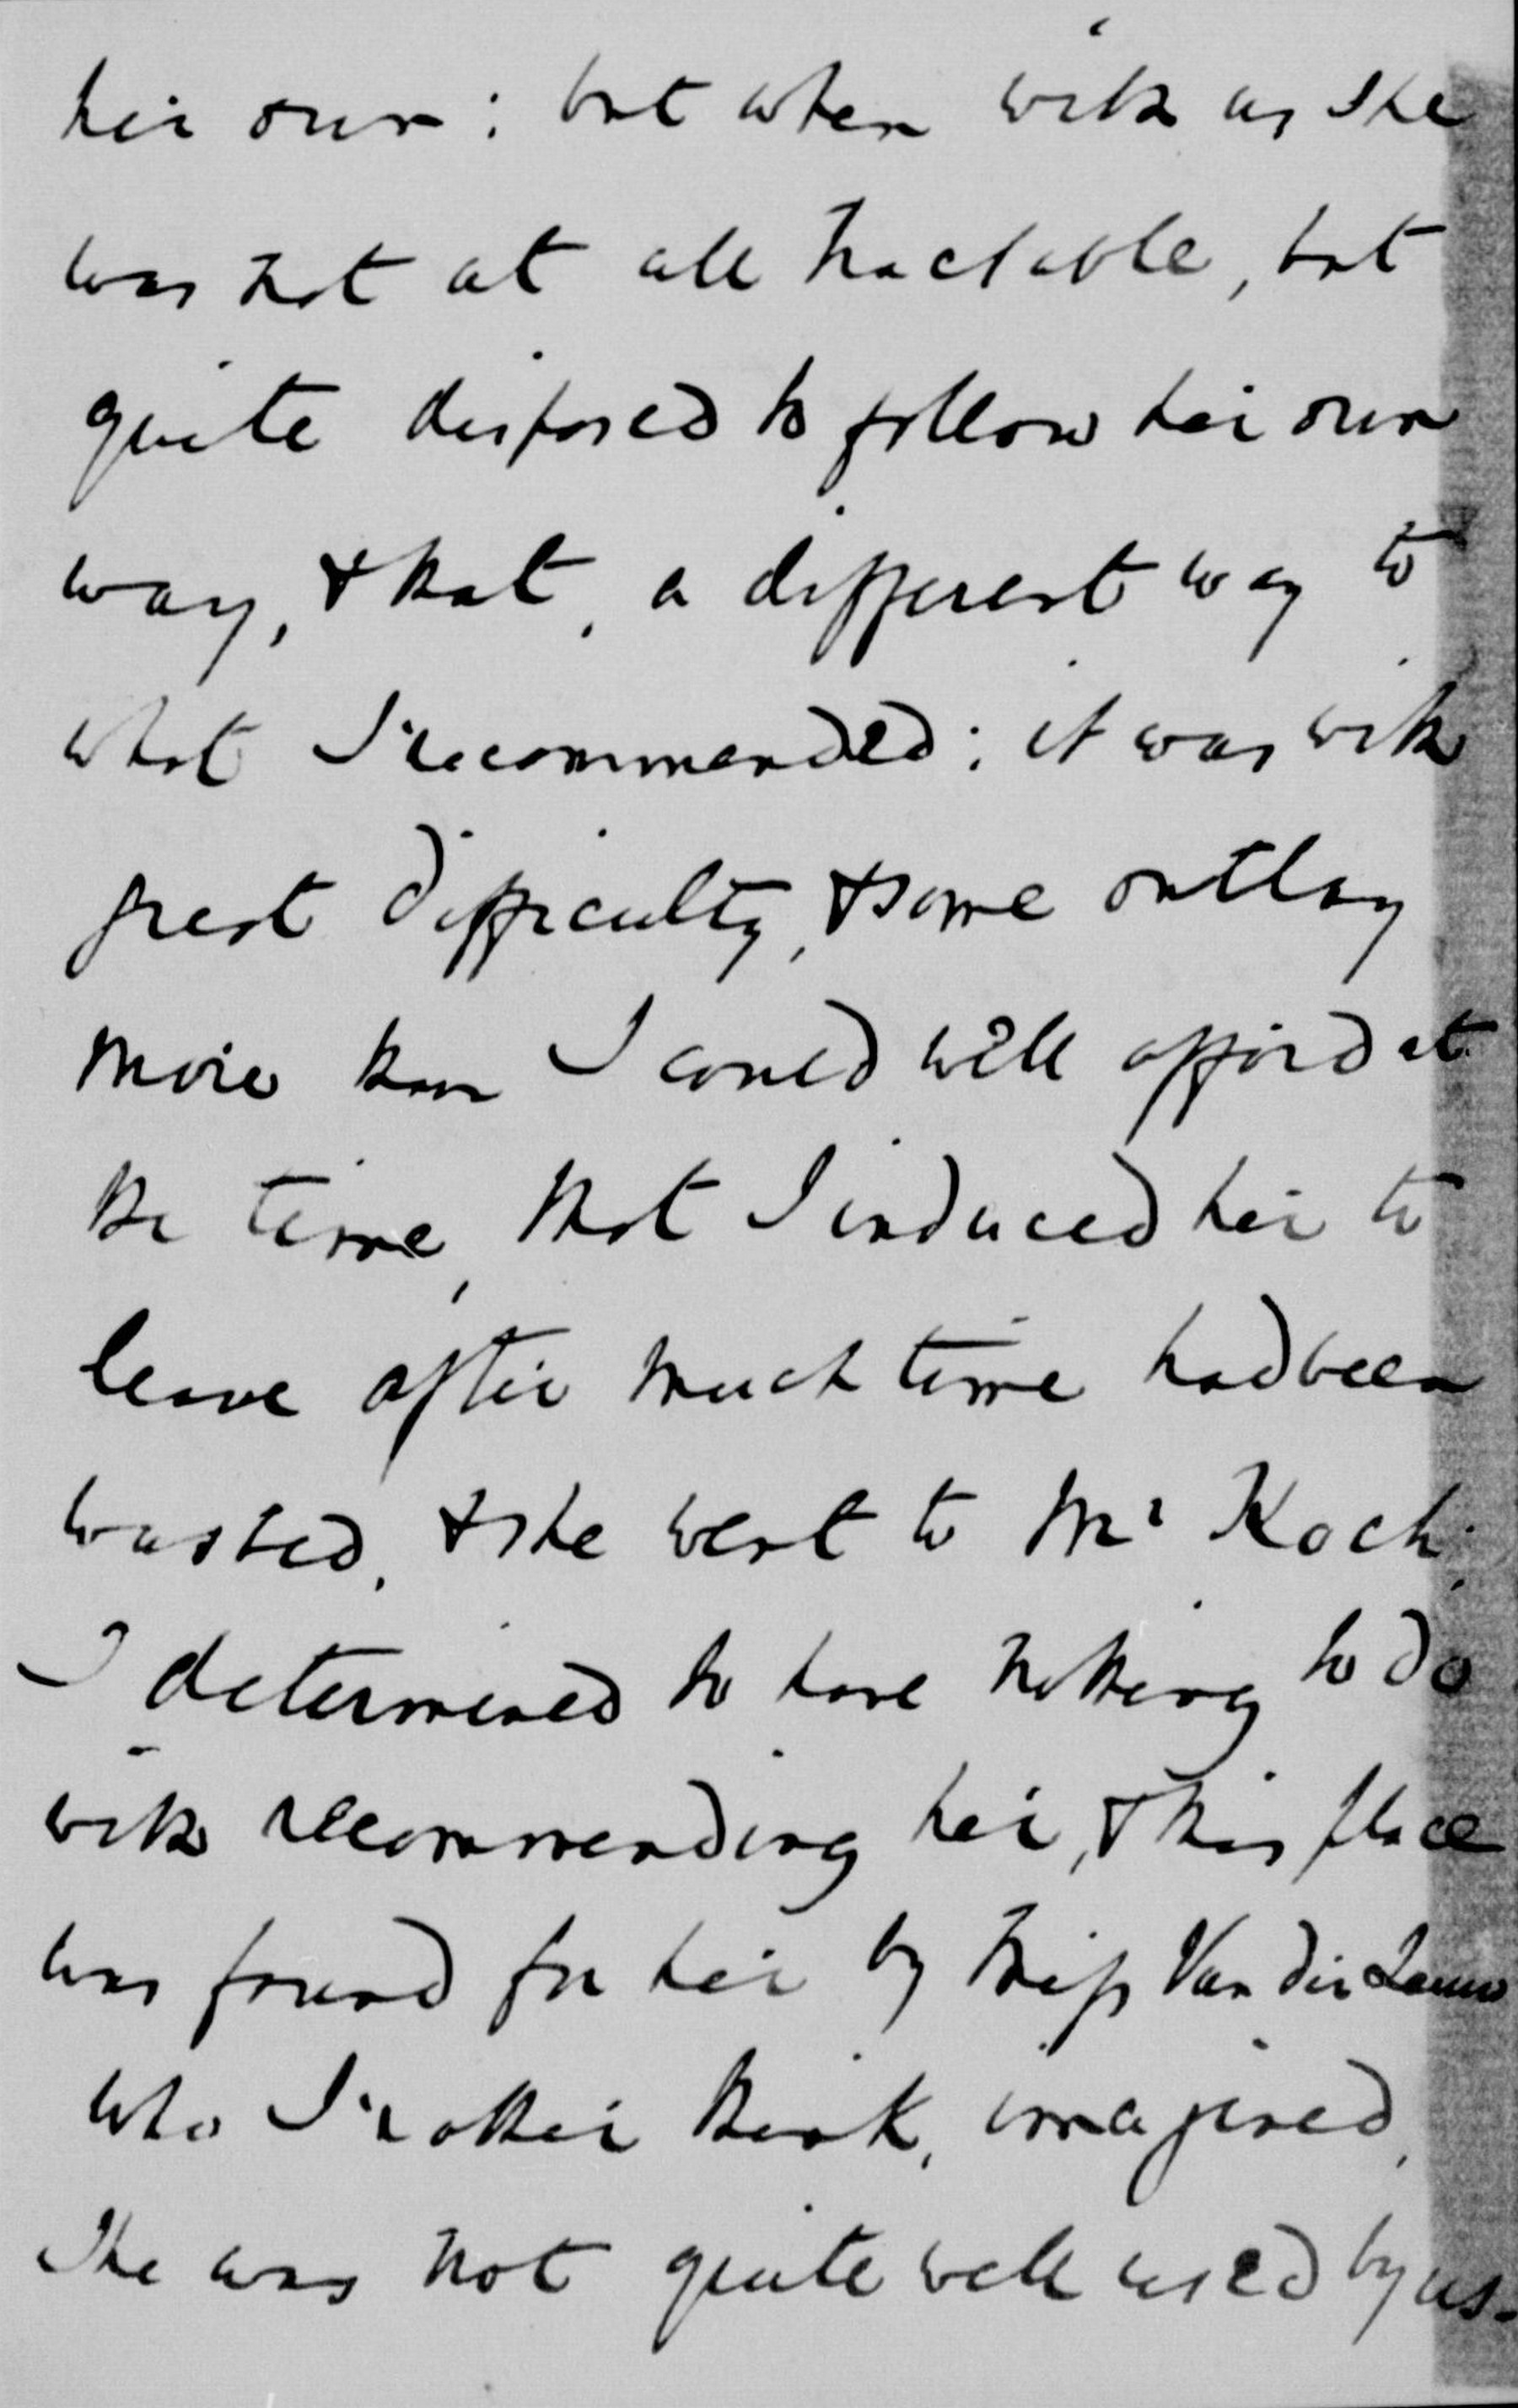 her own: but when with us she
was not at all tractable, but
quite disposed to follow her own
way, & that, a different way to
what I recommended: it was with
great difficulty, & some outlay
more than I could well afford at
the time, that I induced her to
leave after much time had been
wasted, & she went to Mr Koch.
I determined to have nothing to do
with recommending her, & this place
was found for her by Miss Van der
who I rather think, imagined,
she was not quite well used by us.